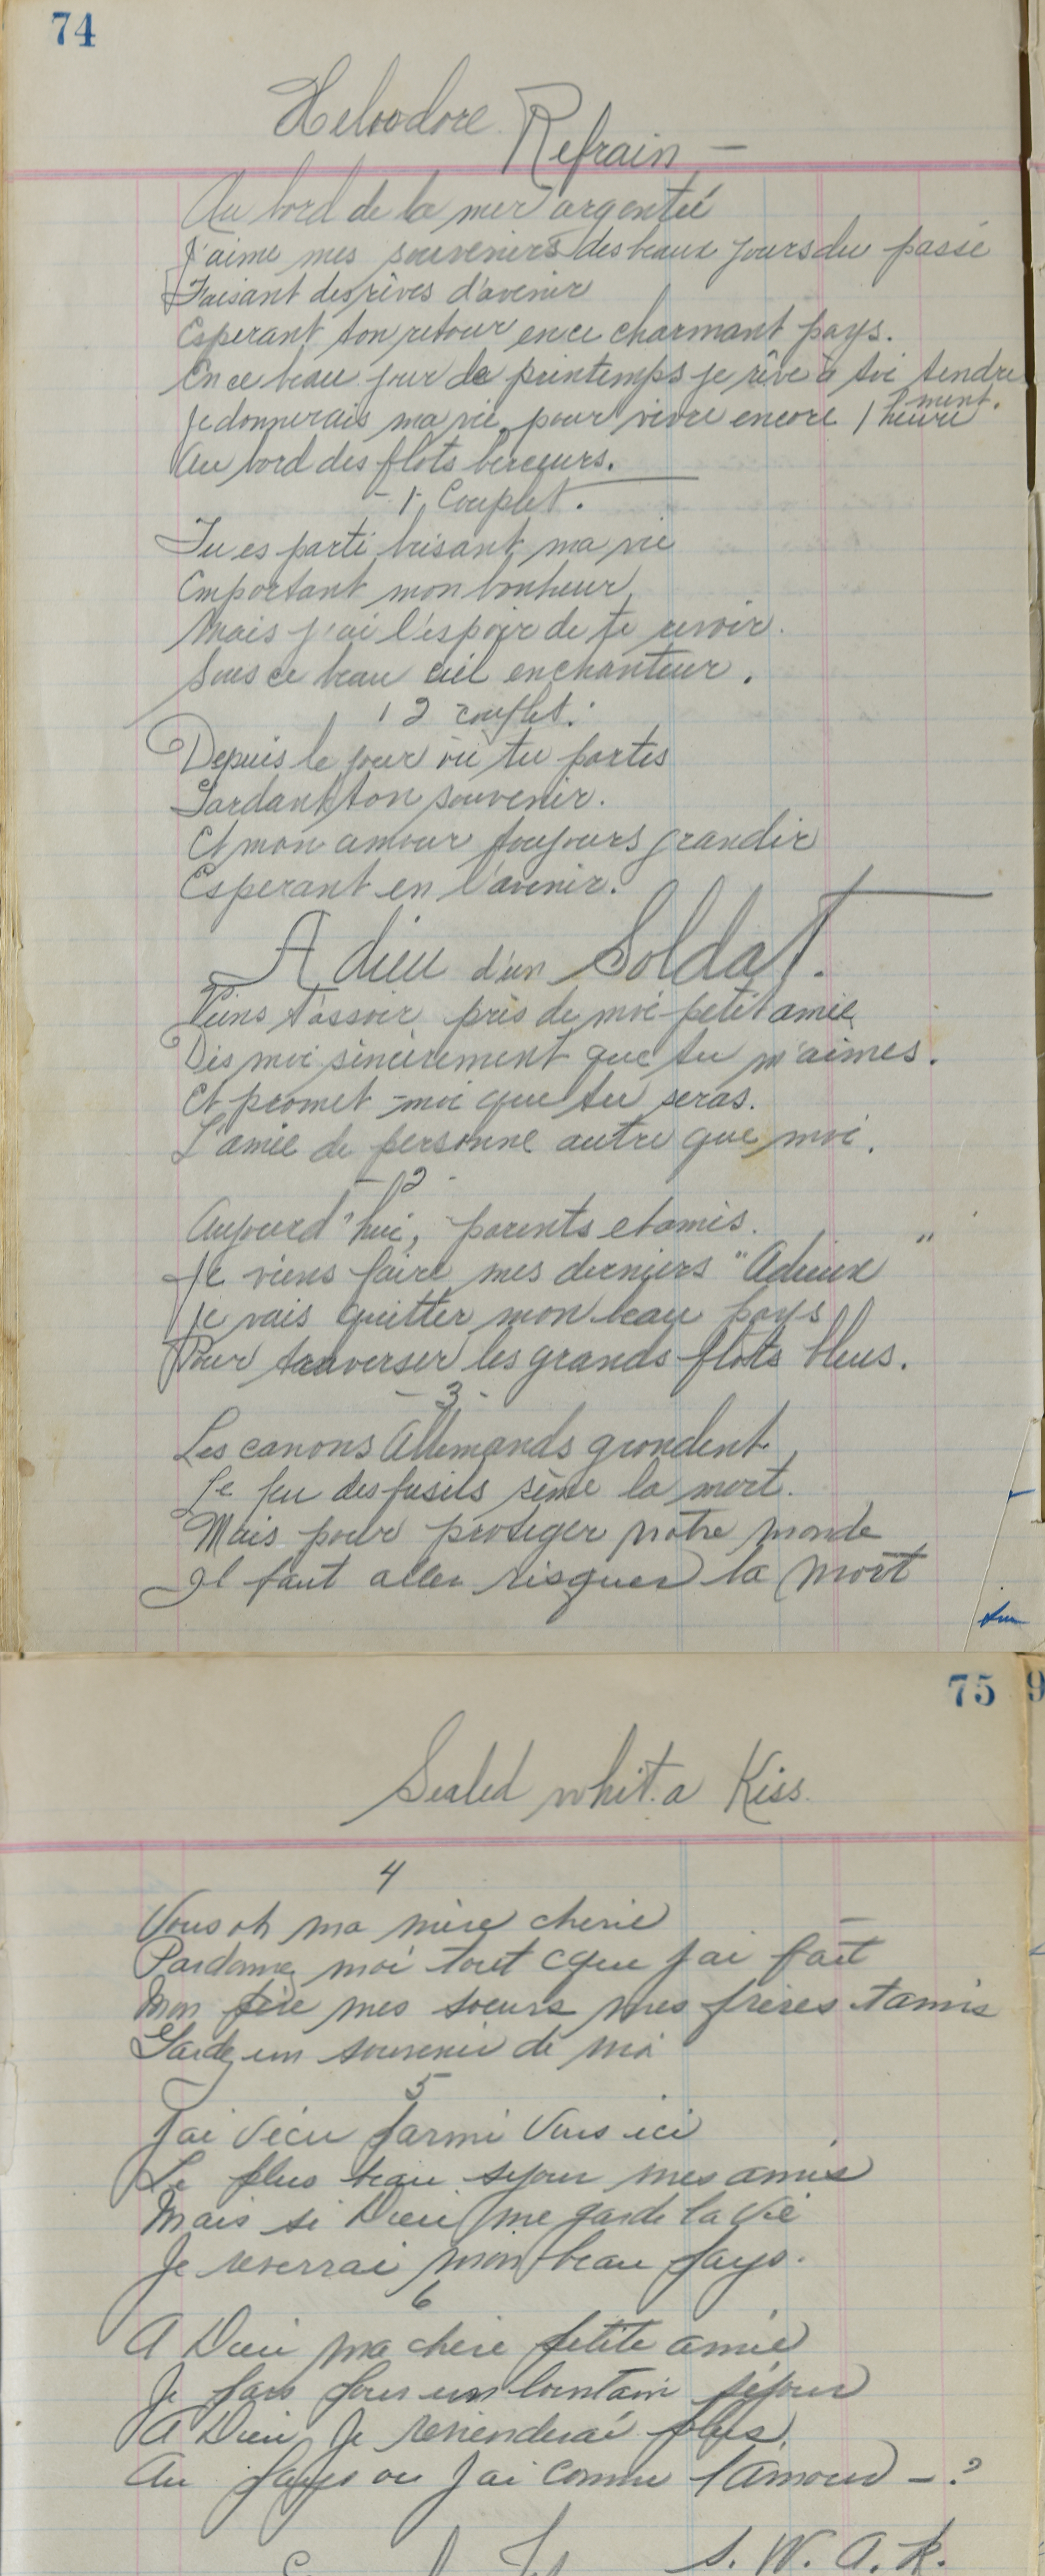 74
Heliodore Refrain —
Au bord de la mer argenteé
J'aime mes souvenirs des beaux jours du passé
Faisant des rêves d'avenir
Esperant ton retour en ce charmant pays.
En ce beau jour de printemps je rêve à toi tendre
ment.
Je donnerais ma vie pour vivre encore 1 heure
Au bord des flots berceurs.
- 1. Couplet.
Tu es parti brisant ma vie
Emportant mon bonheur,
Mais j'ai l'espoir de te revoir.
Sous ce beau ciel enchanteur.
2 couplet.
Depuis le jour où tu partis
Gardant ton souvenir.
Et mon amour toujours grandir
Esperant en l'avenir.
Adieu d'un Soldat.
Viens t'assoir près de moi petit amie
Dis moi sincèrement que tu m'aimes.
Et promet-moi que tu seras.
L'amie de personne autre que moi.
- 2 -
Aujourd'hui, parents et amis.
Je viens faire mes derniers "Adieux"
Je vais quitter mon beau pays
Pour traverser les grands flots bleus.
- 3 -
Les canons Allemands grondent
Le feu des fusils sème la mort.
Mais pour proteger notre monde
Il faut aller risquer la mort
75
Sealed whit a Kiss.
4
Vous oh ma mère cherie
Pardonne moi tout cque jai fait
Mon père mes soeurs mes frères tamis
Gardez un souvenir de moi
5
Jai vécu parmi vous ici
Le plus beau sejour mes amis
Mais si Dieu me garde la vie
Je reverrai mon beau pays.
6
A Dieu ma chère petite amie
Je pars pour un lointain séjour
A Dieu Je reviendrai plus
Au pays ou Jai connu l'amour - ?
S. W. A. K.